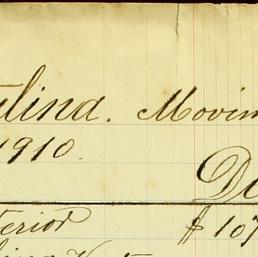 lina. Movim
1910.
De
terior $ 107